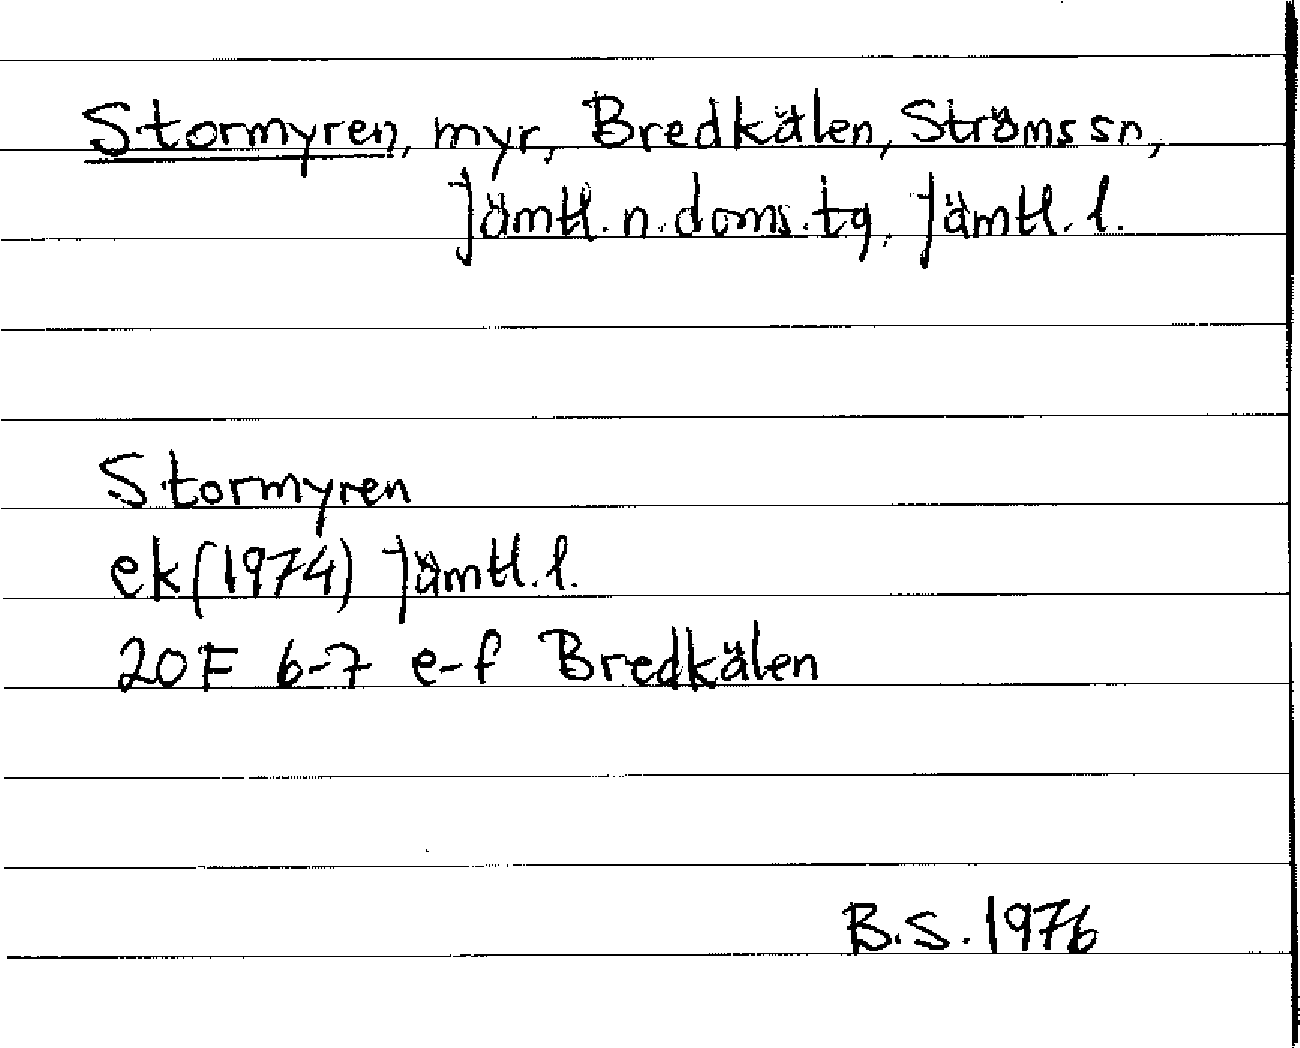 Stormyren, myr, Bredkälen, Ströms sn,
Jämtl. n. doms. tg, Jämtl. l.
Stormyren
ek (1974) Jämtl. l.
20F 6-7 e-f Bredkälen
B.S. 1976